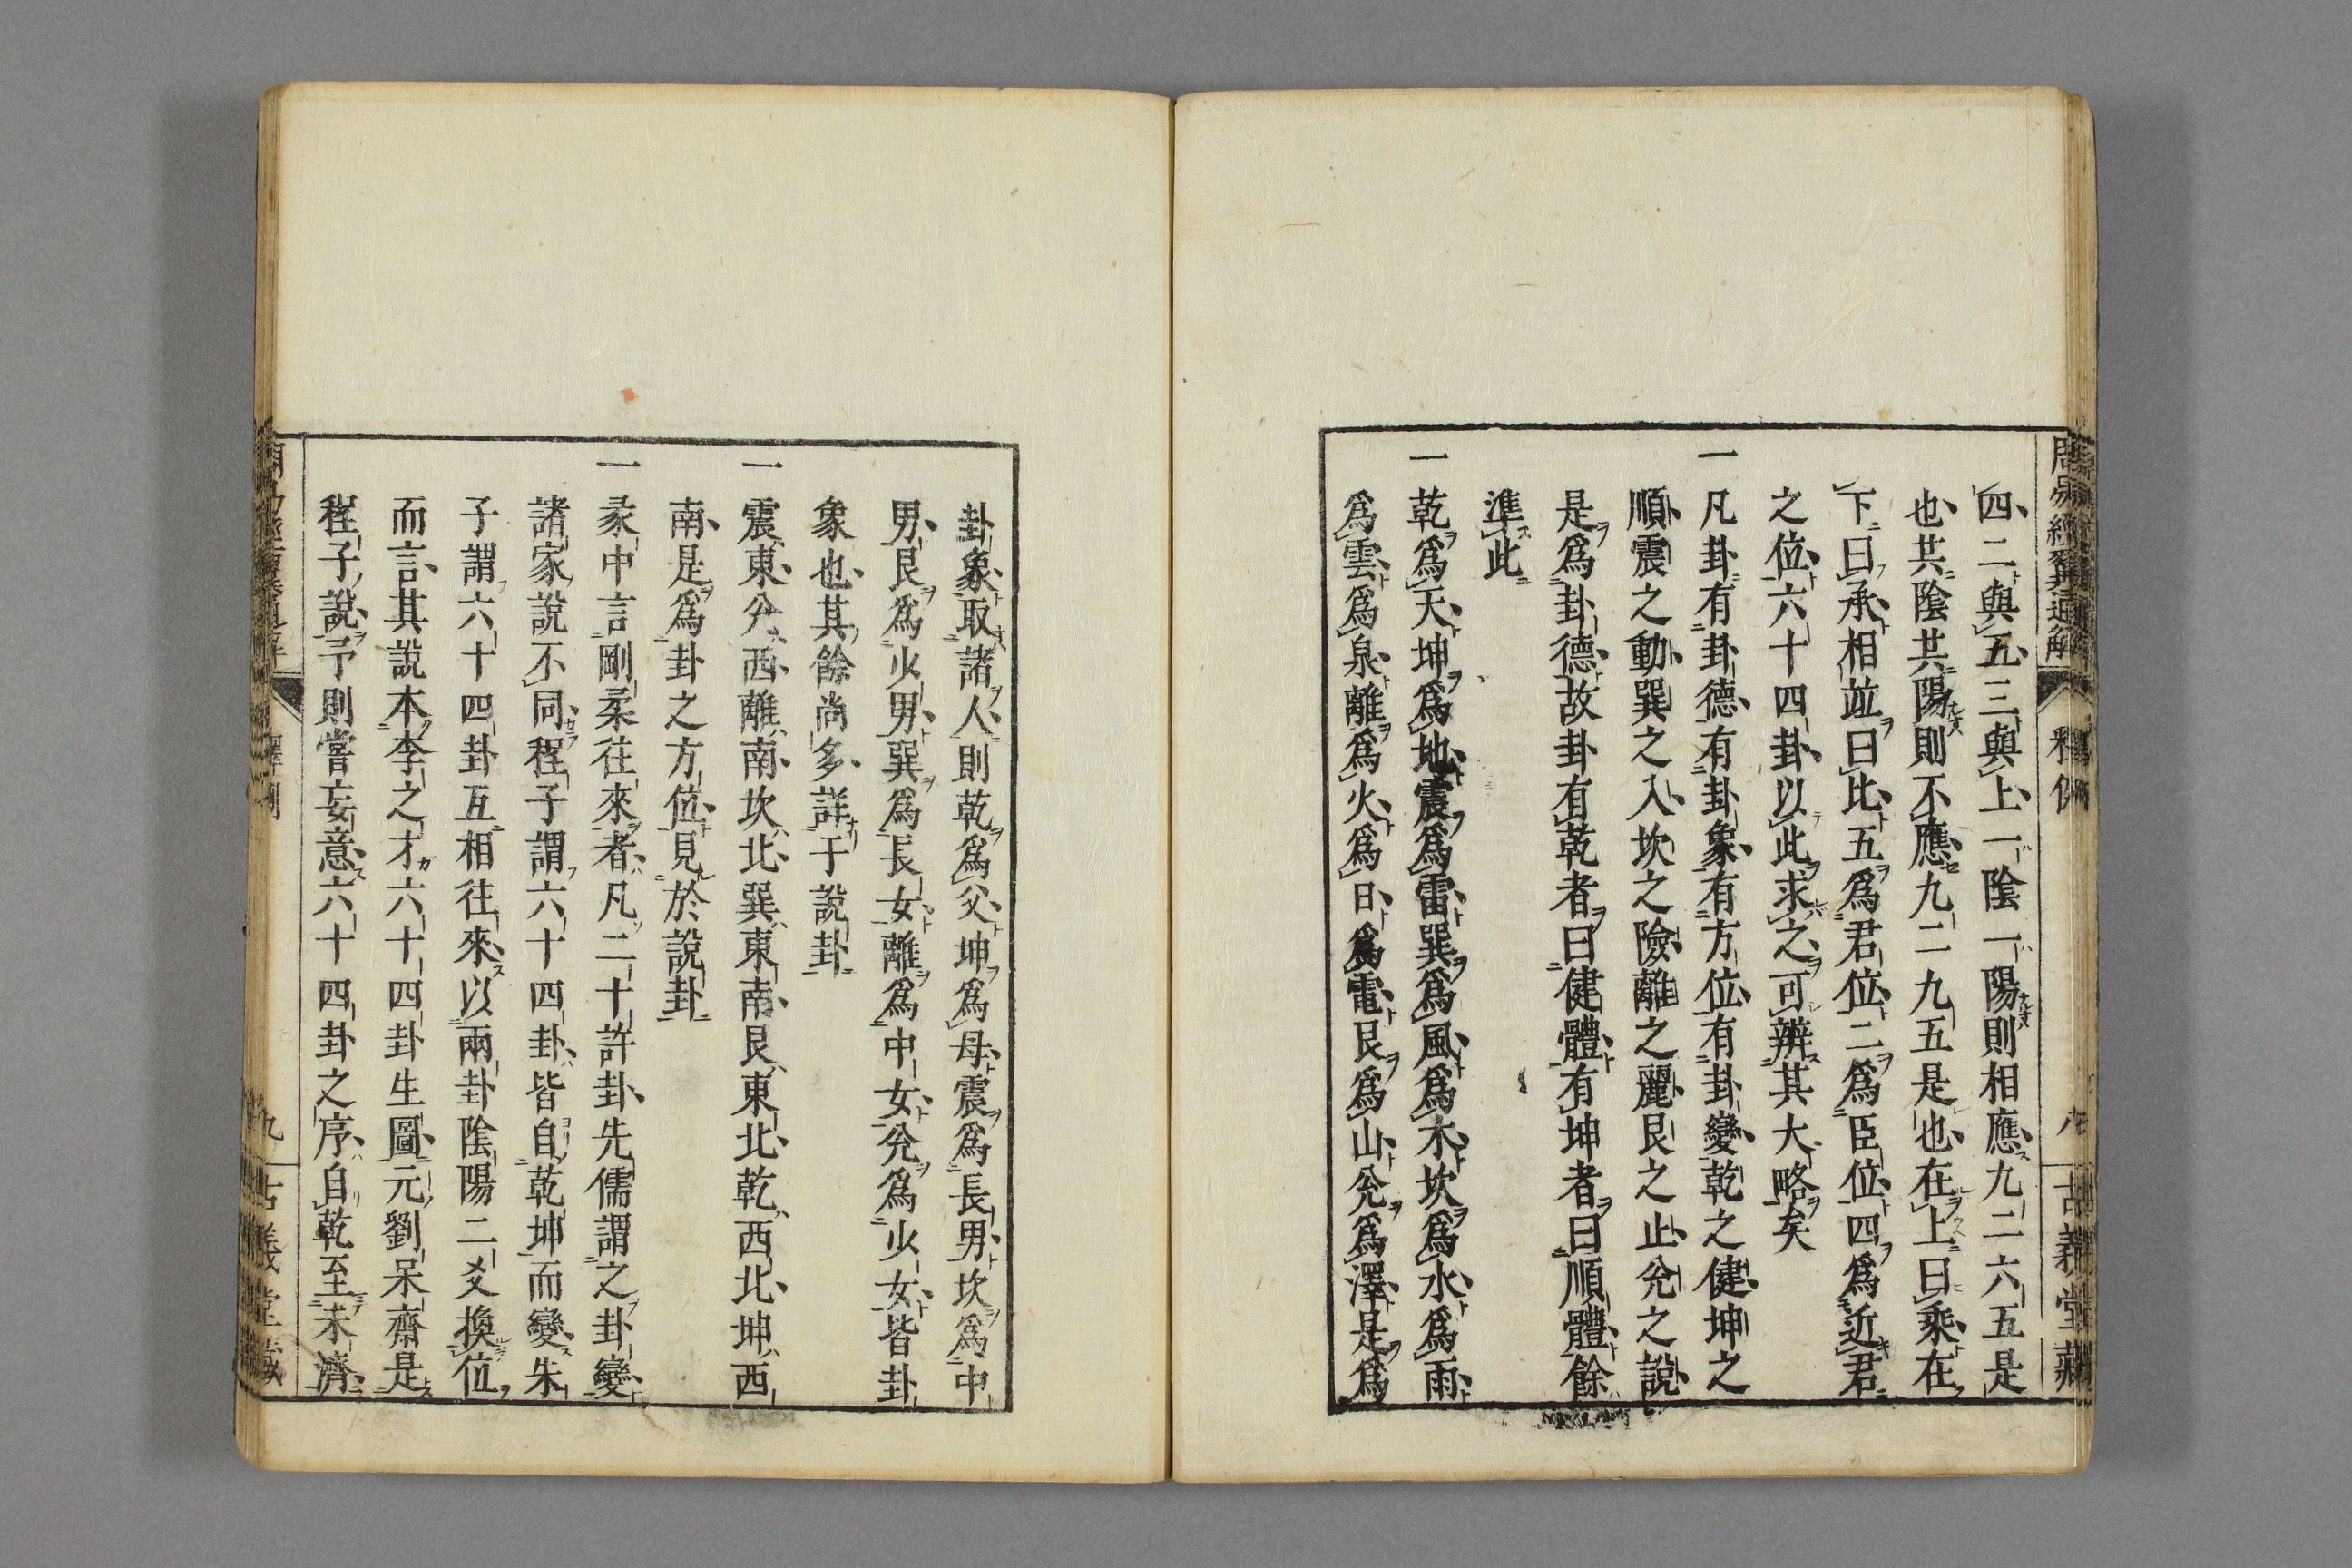 周易經翼通解
釋例
八
古義堂藏
四二與五三與上一陰一陽則相應九二六五是
也其陰其陽則不應九二九五是也在上曰乘在
下曰承相竝曰比五爲君位二爲臣位四爲近君
之位六十四卦以此求之可辨其大略矣
一凡卦有卦德有卦象有方位有卦變乾之健坤之
順震之動巽之入坎之險離之麗艮之止兌之說
是爲卦德故卦有乾者曰健體有坤者曰順體餘
準此
一乾爲天坤爲地震爲雷巽爲風爲木坎爲水爲雨
爲雲爲泉離爲火爲日爲電艮爲山兌爲澤是爲
卦象取諸人則乾爲父坤爲母震爲長男坎爲中
男艮爲少男巽爲長女離爲中女兌爲少女皆卦
象也其餘尚多詳于說卦
一震東兌西離南坎北巽東南艮東北乾西北坤西
南是爲卦之方位見於說卦
一彖中言剛柔往來者凡二十許卦先儒謂之卦變
諸家說不同程子謂六十四卦皆自乾坤而變朱
子謂六十四卦互相往來以兩卦陰陽二爻換位
而言其說本李之才六十四卦生圖元劉呆齋是
程子說予則嘗妄意六十四卦之序自乾至未濟
九
古義堂藏